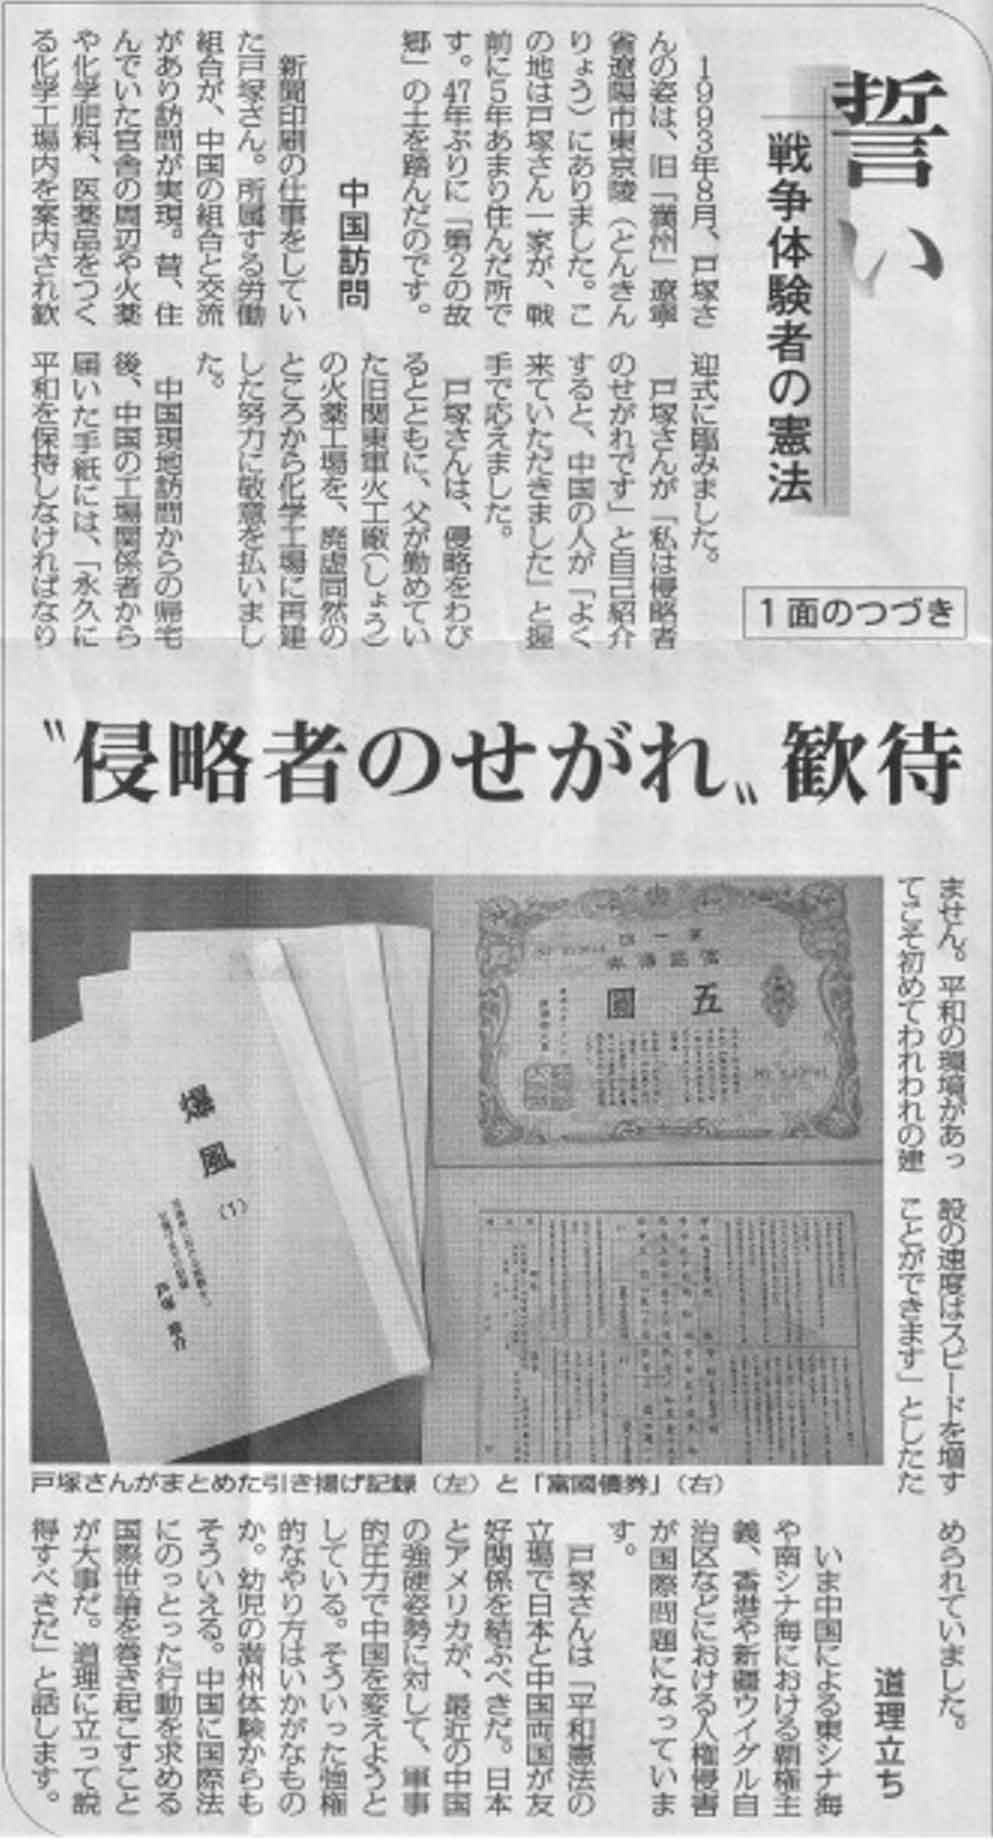 誓い
戦争体験者の憲法
1面のつづき
1993年8月、戸塚さ
んの姿は、旧「満州」遼寧
省遼陽市東京陵（とんきん
りょう）にありました。こ
の地は戸塚さん一家が、戦
前に5年あまり住んだ所で
す。47年ぶりに「第2の故
郷」の土を踏んだのです。
中国訪問
新聞印刷の仕事をしてい
た戸塚さん。所属する労働
組合が、中国の組合と交流
があり訪問が実現。昔、住
んでいた官舎の周辺や火薬
や化学肥料、医薬品をつく
る化学工場内を案内され歓
迎式に臨みました。
戸塚さんが「私は侵略者
のせがれです」と自己紹介
すると、中国の人が「よく
来ていただきました」と握
手で応えました。
戸塚さんは、侵略をわび
るとともに、父が勤めてい
た旧関東軍火工廠（しょう）
の火薬工場を、廃虚同然の
ところから化学工場に再建
した努力に敬意を払いまし
た。
中国現地訪問からの帰宅
後、中国の工場関係者から
届いた手紙には、「永久に
平和を保持しなければなり
〝侵略者のせがれ〟歓待
ません。平和の環境があっ
てこそ初めてわれわれの建
設の速度はスピードを増す
ことができます」としたた
められていました。
五圓
爆風
(1)
戸塚さんがまとめた引き揚げ記録（左）と「富國債券」（右）
道理立ち
いま中国による東シナ海
や南シナ海における覇権主
義、香港や新疆ウイグル自
治区などにおける人権侵害
が国際問題になっていま
す。
戸塚さんは「平和憲法の
立場で日本と中国両国が友
好関係を結ぶべきだ。日本
とアメリカが、最近の中国
の強硬姿勢に対して、軍事
的圧力で中国を変えようと
している。そういった強権
的なやり方はいかがなもの
か。幼児の満州体験からも
そういえる。中国に国際法
にのっとった行動を求める
国際世論を巻き起こすこと
が大事だ。道理に立って説
得すべきだ」と話します。